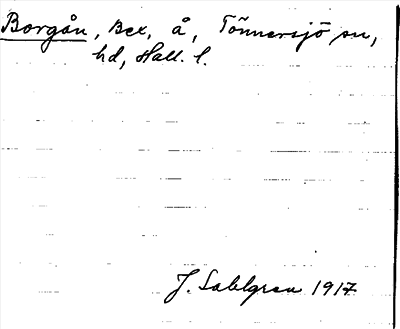 Borgån, Bex, å, Tönnersjö sn,
hd, Hall. l.
J. Sahlgren 1917